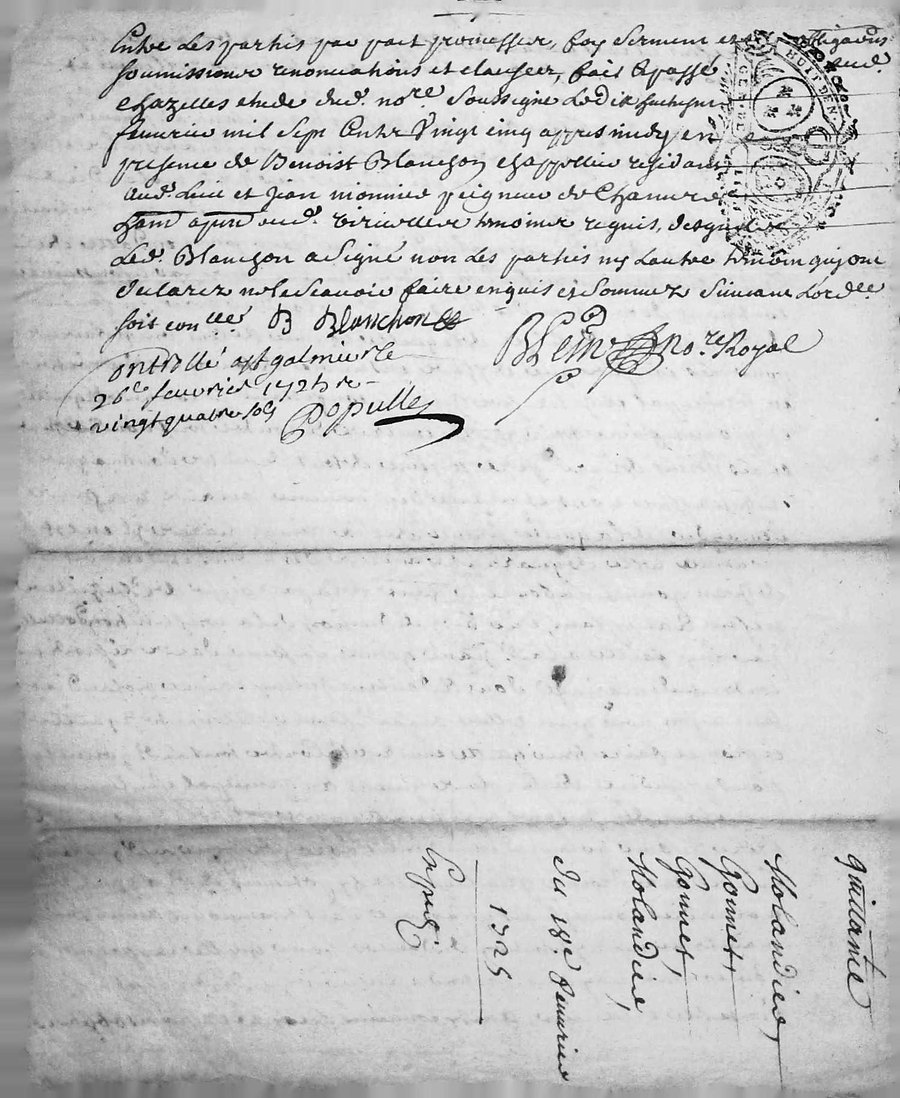 Entre les partis par part promesses, foy serment et obligations
soumissions renonciations et clauses, fait & passé aud.
Chazelles etude dud. no.re soussigné le dix huitieme
feuurier mil sept Cents Vingt cinq appres midy en
presence de Benoist Blanchon chappellier residant
aud. lieu et Jean mionnier peigneur de Chamvre
Led. Blanchon a Signé non les parties ny lautre tesmoin qui ont
declarez ne le scauoir faire enquis et sommez suivant lord.ce
soit con.llé B Blanchon
no.re Royal
Controllé a st galmier le
26e feuvrier 1725 re
vingt quatre sols
Populle
HUIT DEN
quittance
Molandier,
Gonnet,
Gonnet,
Molandier,
du 18.e feuurier
1725
Exped.